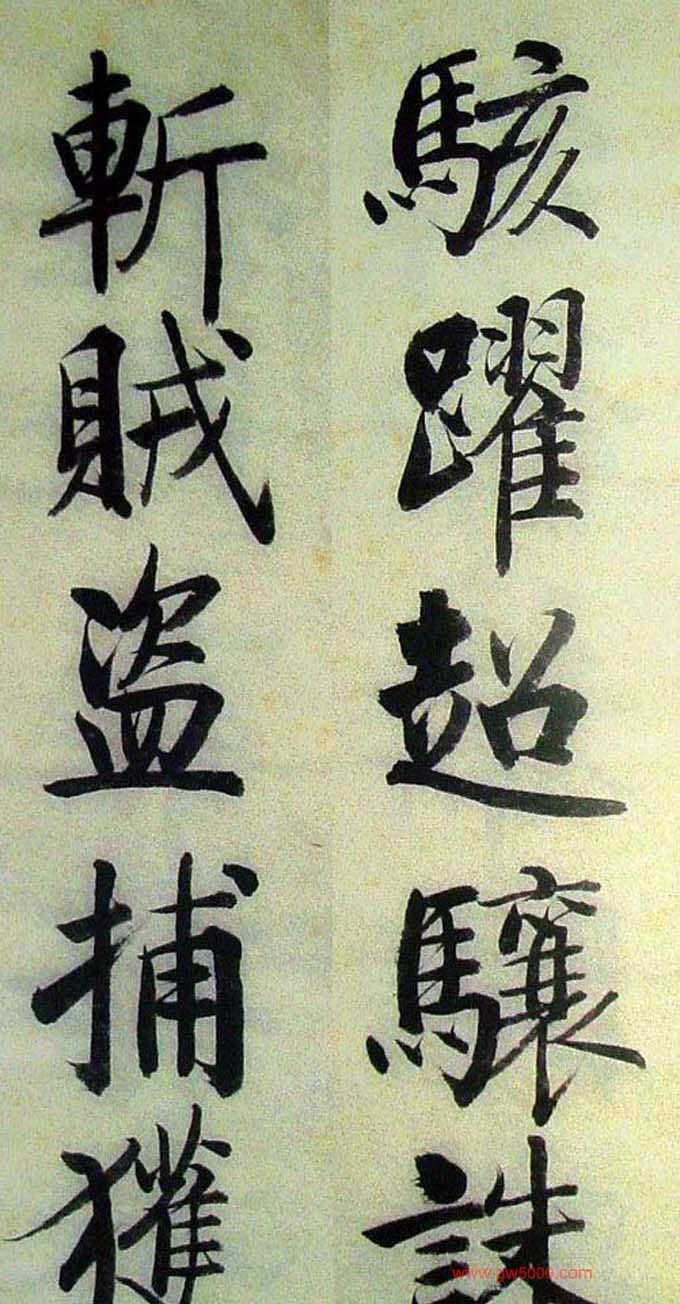 駭躍超驤誅
斬賊盜捕獲
www.gw5000.com